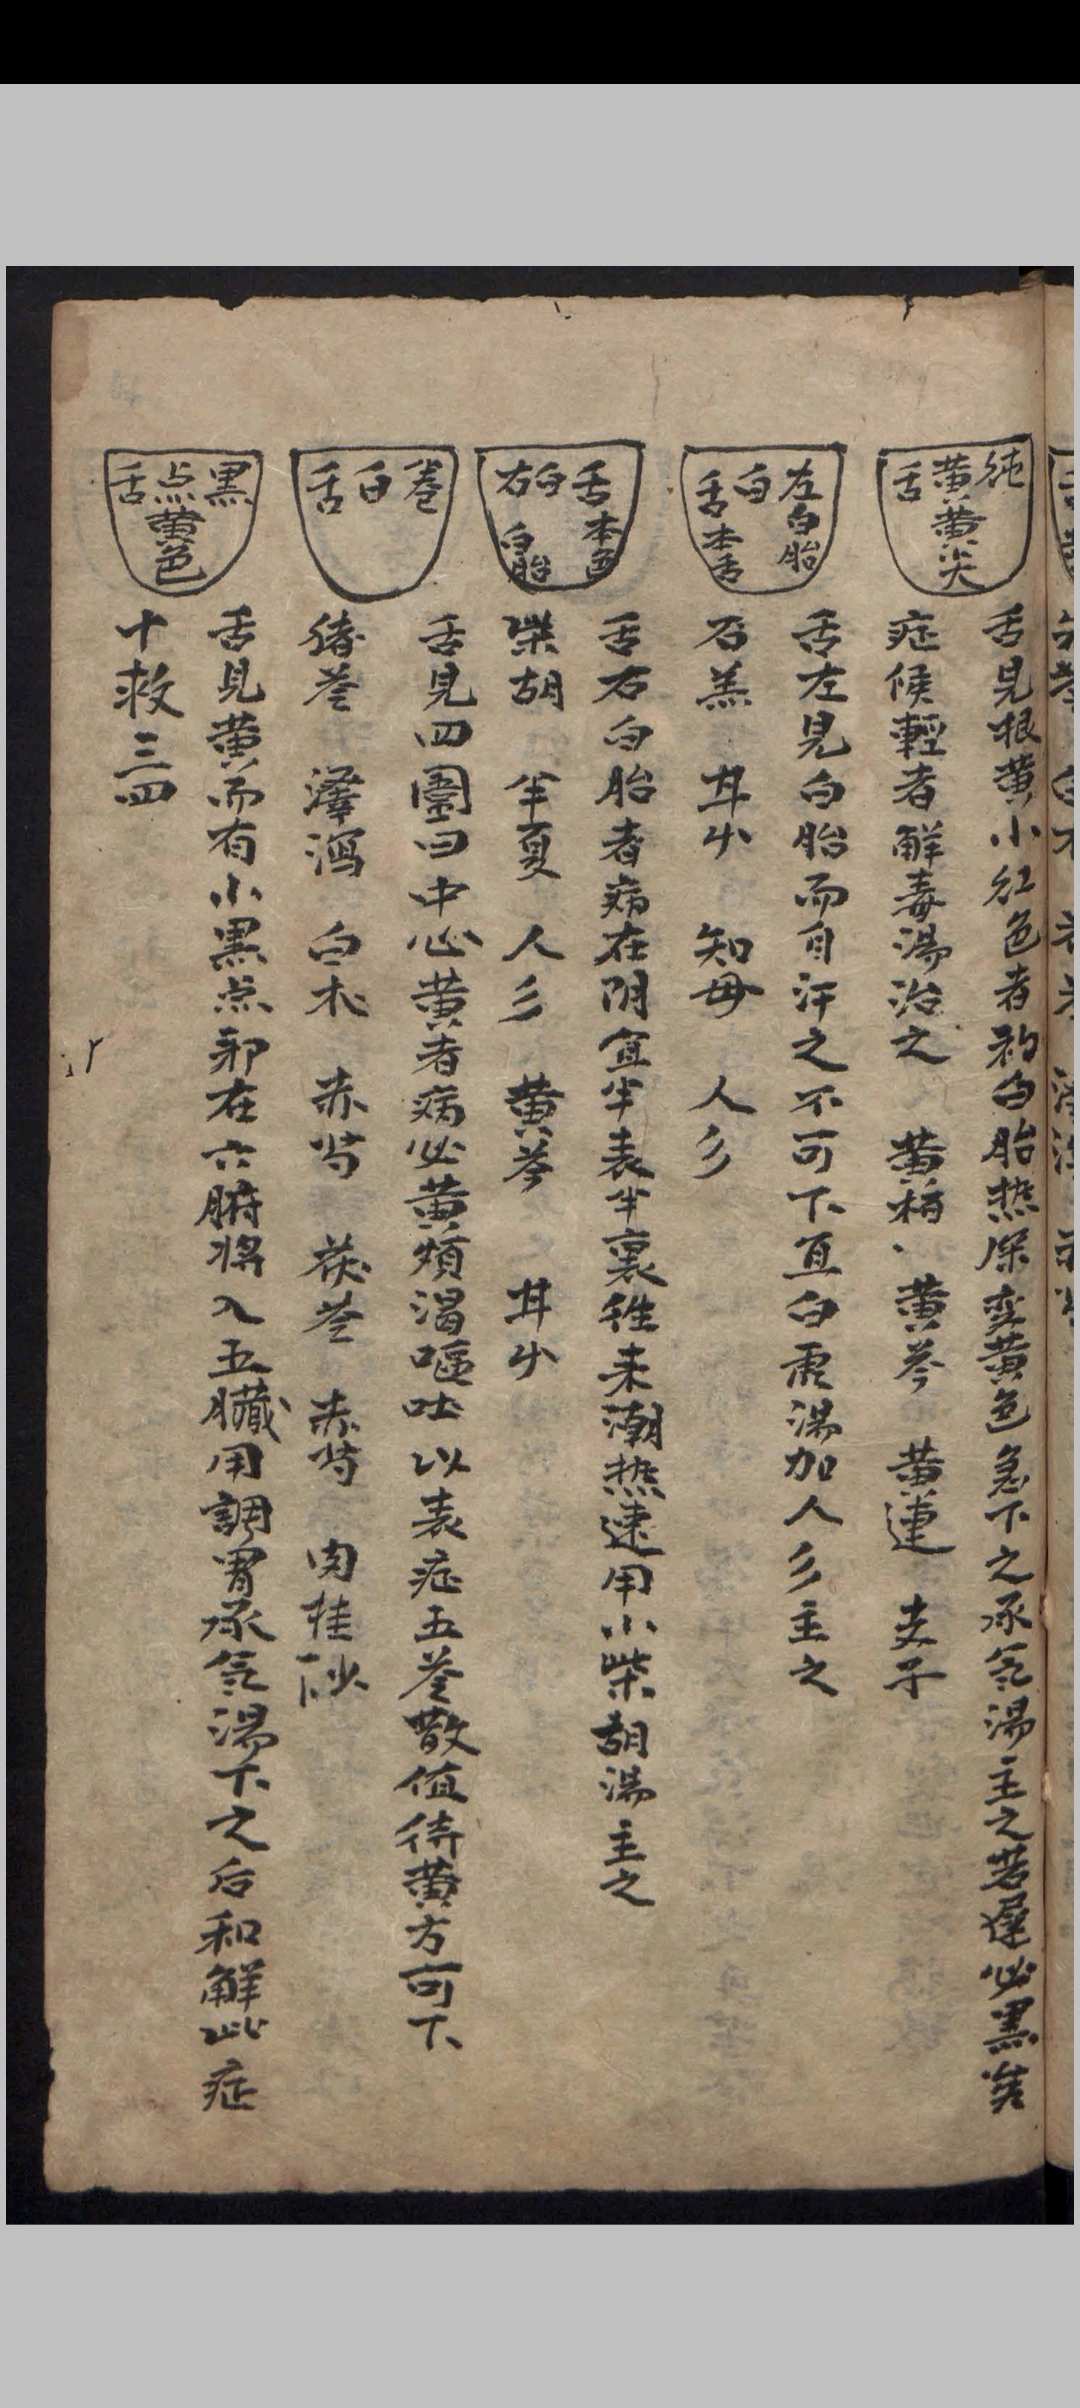 純
黄黄尖
舌
舌見根黄小紅色者初白胎热深变黄色急下之承気湯主之若遲必黒矣
症候輕者解毒湯治之 黄柏、黄芩 黄連 支子
左白胎
白
舌本舌
舌左見白胎而自汗之不可下宜白雨湯加人彡主之
石羔 甘屮 知母 人彡
舌本色
白
右白胎
舌右白胎者病在阴宜半表半裏徃来潮热速用小柴胡湯主之
柴胡 半夏 人彡 黄芩 甘屮
卷
白
舌
舌見四圍白中心黄者病必黄煩渴嘔吐以表症五苓散值待黄方可下
猪苓 澤瀉 白朮 赤芍 茯苓 赤芍 肉桂
黒
点黄色
舌
舌見黄而有小黒点邪在六腑将入五臓用調胃承気湯下之后和解此症
十救三四